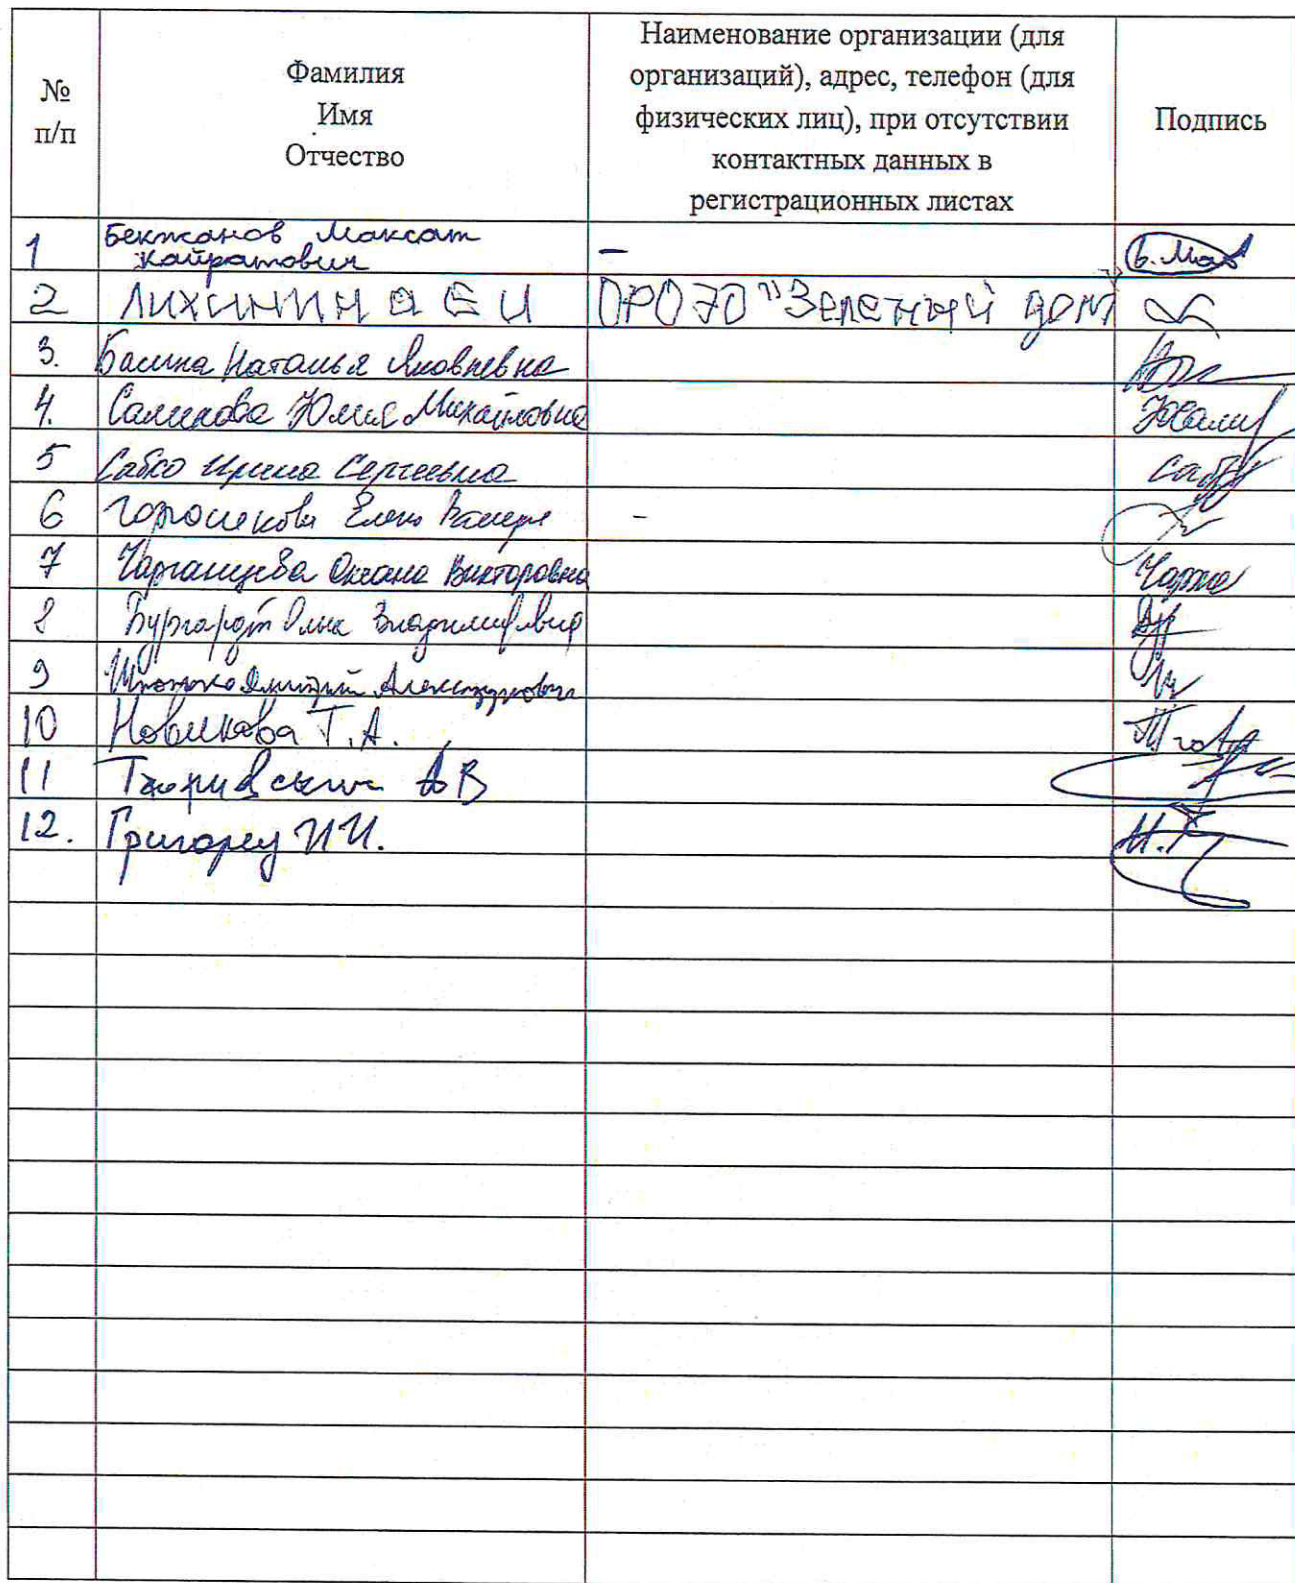 №
п/п
Фамилия
Имя
Отчество
Наименование организации (для
организаций), адрес, телефон (для
физических лиц), при отсутствии
контактных данных в
регистрационных листах
Подпись
1 Бекжанов Максат
Кайратович –
2 Лихинина Е И ОРОЭО "Зеленый дом
3. Наталья Яковлевна
4. Саликова Юлия Михайловна
5 Сабко Ирина Сергеевна
6 Елена –
7 Оксана Викторовна
8 Бургардт
9 Дмитрий Александрович
10 Новикова Т.А.
11 АВ
12. Григорец И И.